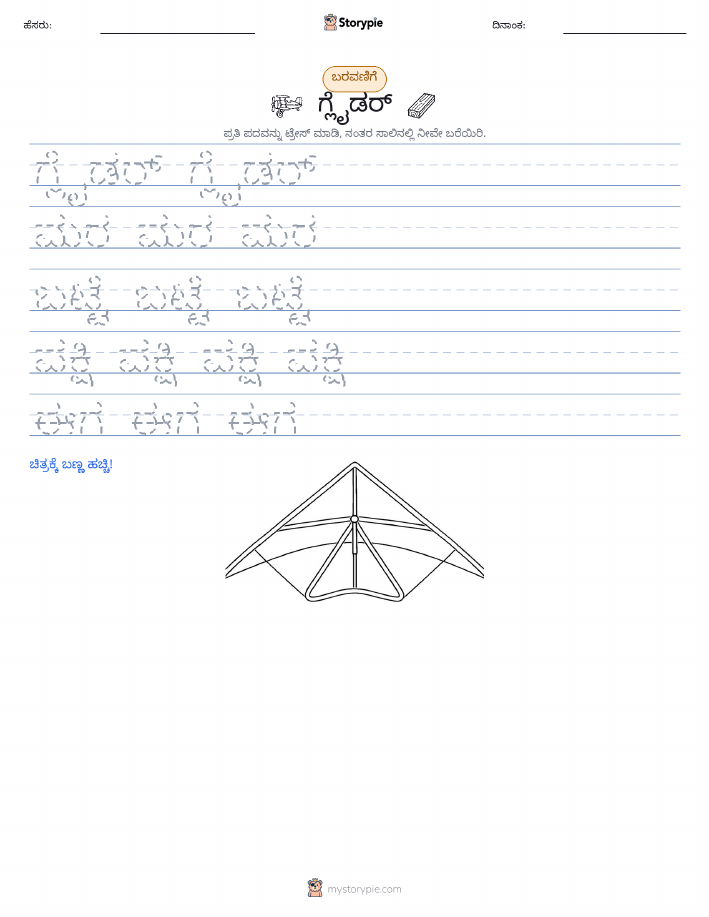 ಹೆಸರು:
Storypie
ದಿನಾಂಕ:
ಬರವಣಿಗೆ
ಗ್ಲೈಡರ್
ಪ್ರತಿ ಪದವನ್ನು ಟ್ರೇಸ್ ಮಾಡಿ, ನಂತರ ಸಾಲಿನಲ್ಲಿ ನೀವೇ ಬರೆಯಿರಿ.
ಗ್ಲೈಡರ್ ಗ್ಲೈಡರ್
ಮರ ಮರ ಮರ
ಬಟ್ಟೆ ಬಟ್ಟೆ ಬಟ್ಟೆ
ಚಿತ್ರಕ್ಕೆ ಬಣ್ಣ ಹಚ್ಚಿ!
mystorypie.com